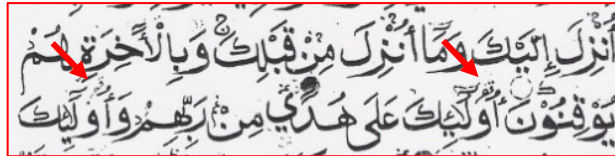 أُنْزِلَ إِلَيْكَ وَمَا أُنْزِلَ مِنْ قَبْلِكَ وَبِالْأَخِرَةِ هُمْ
يُوقِنُوْنَ أُولَٰئِكَ عَلَى هُدًى مِنْ رَبِّهِمْ وَأُولَٰئِكَ